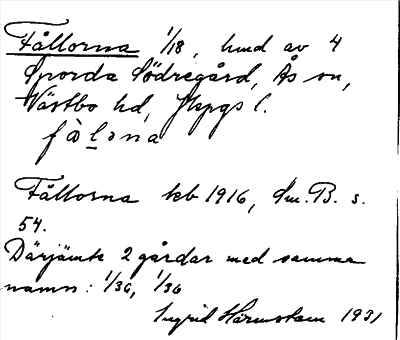 Fållorna 1/18, hmd av 4
Sporda Södregård, Ås sn,
Västbo hd, Jkpgs l.
få̀l̠ɔna
Fållorna kb 1916, Sm. B. s.
54.
Därjämte 2 gårdar med samma
namn: 1/36, 1/36
Ingrid Härmstam 1931